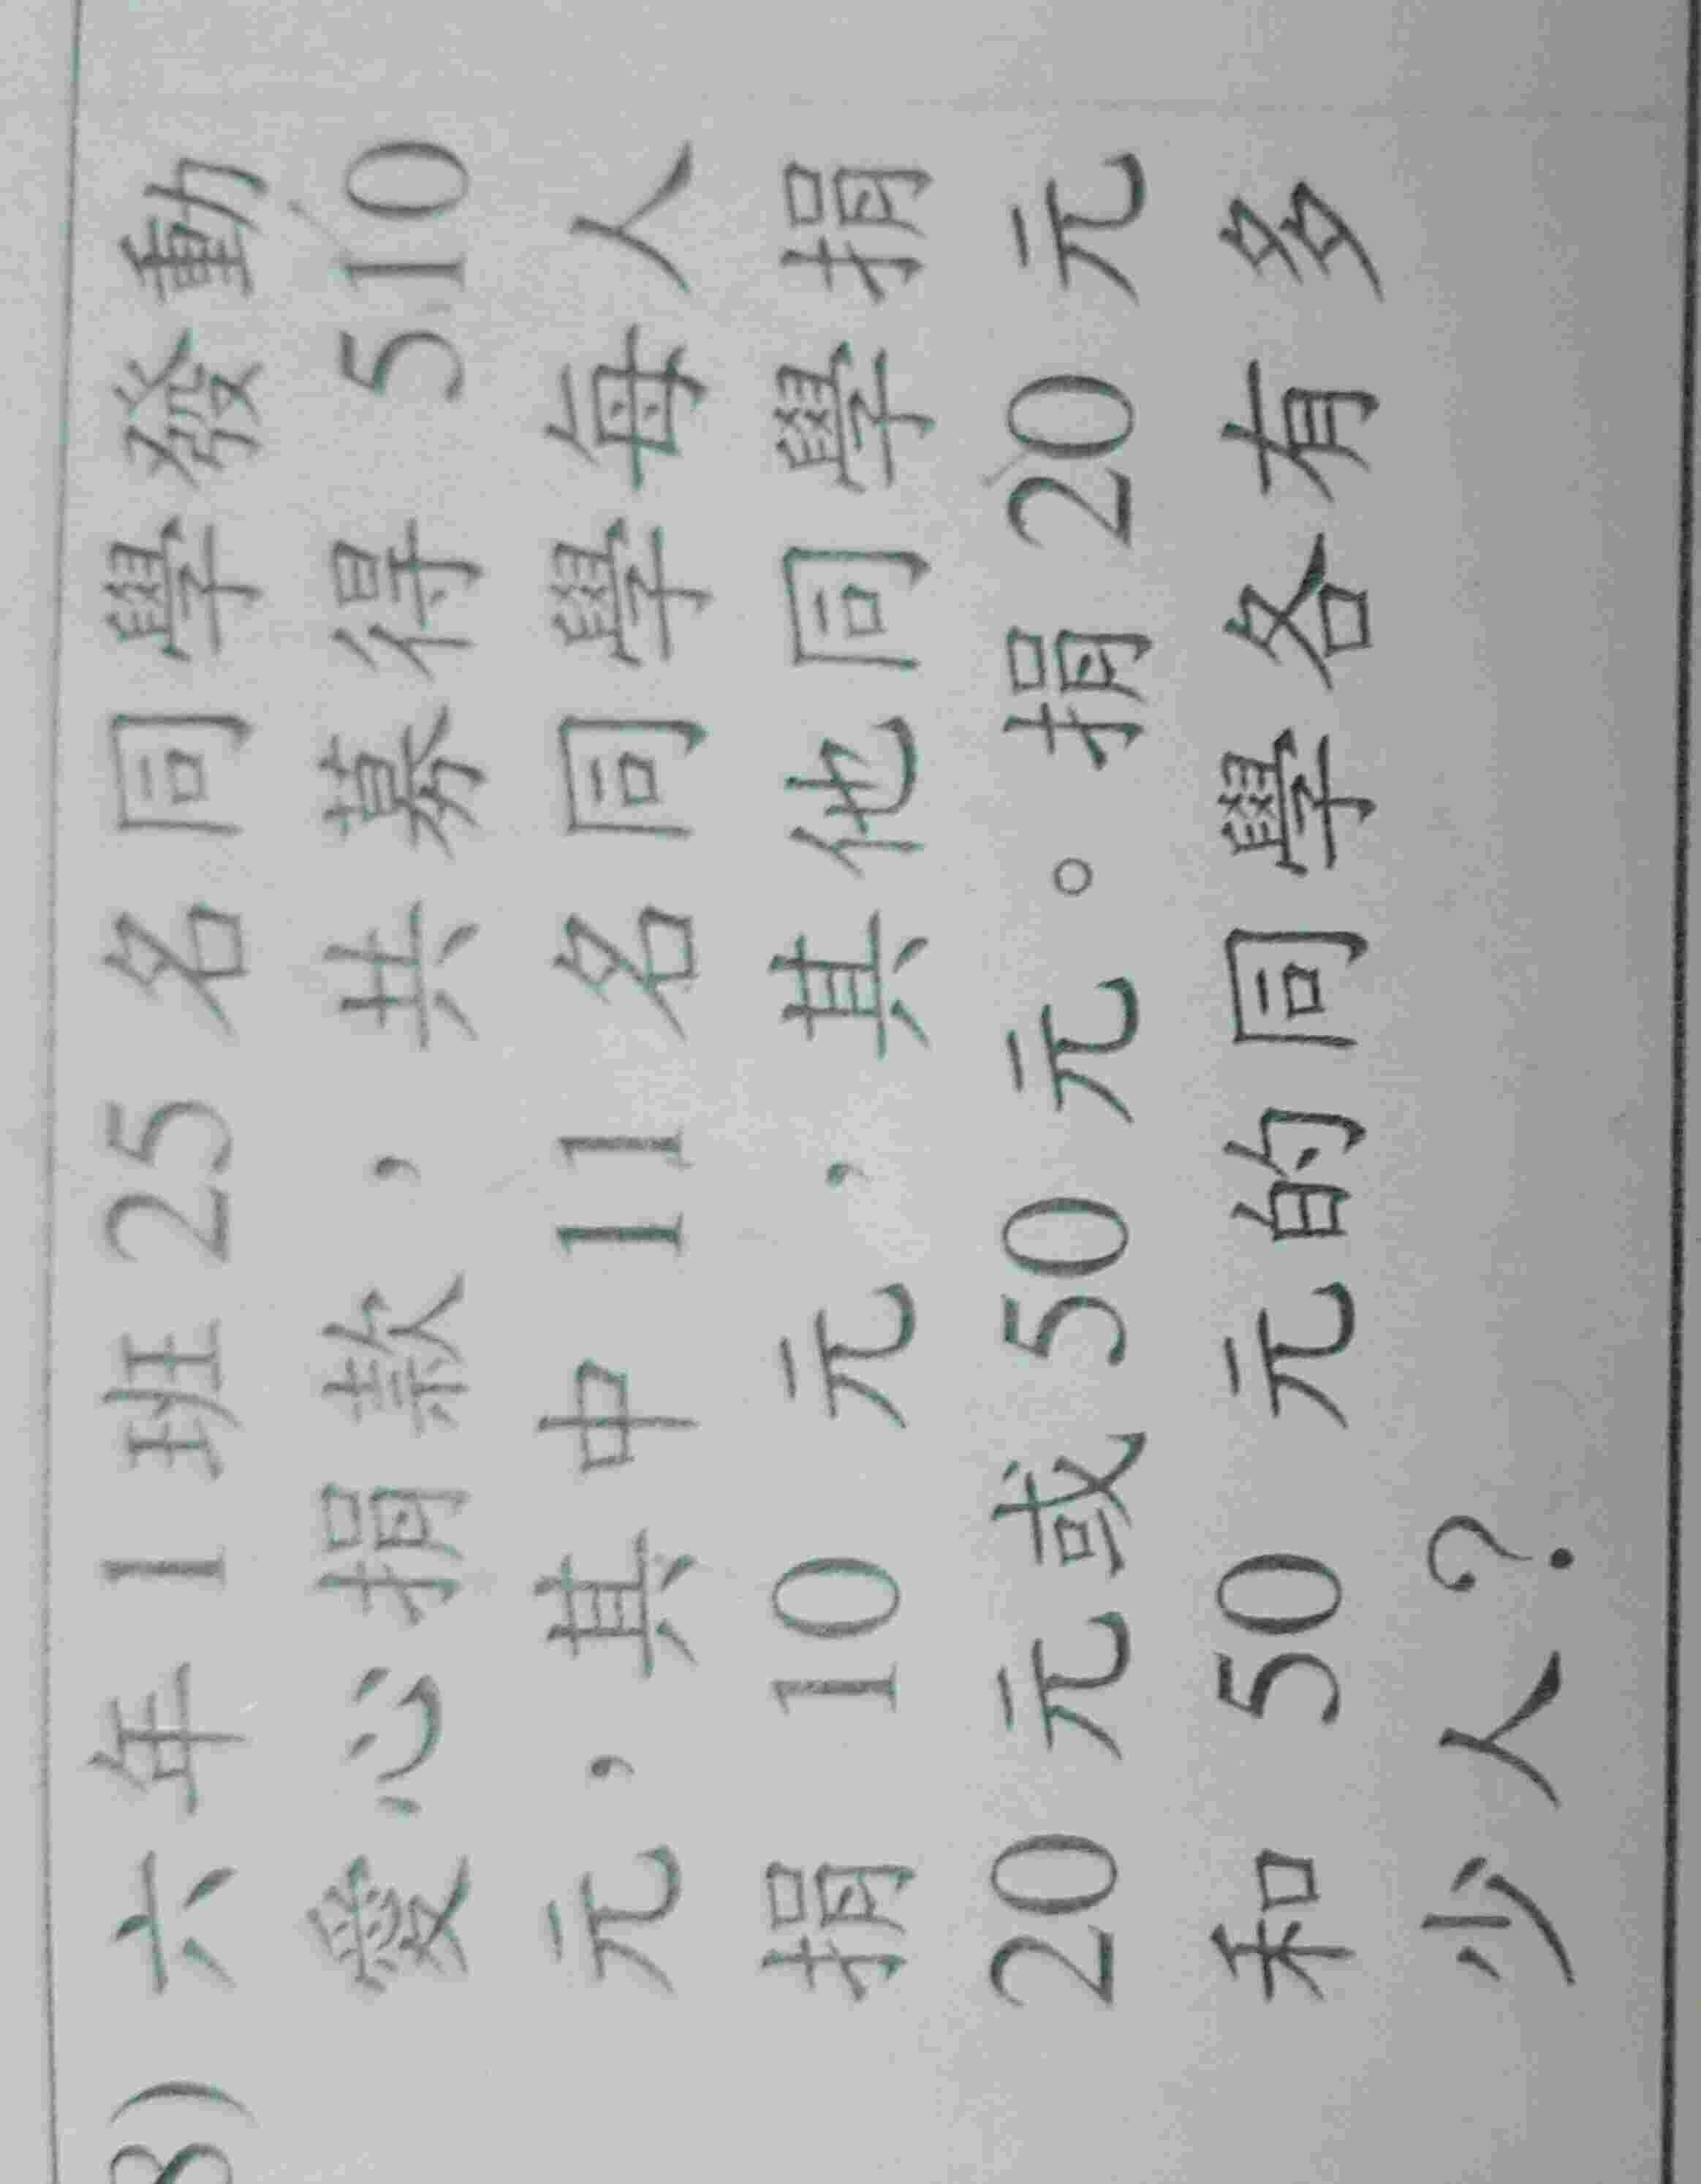 8) 六年1班25名同學發動
愛心捐款，共募得 510
元，其中 11 名同學每人
捐 10 元，其他同學捐
20元或50元。捐20元
和 50 元的同學各有多
少人？